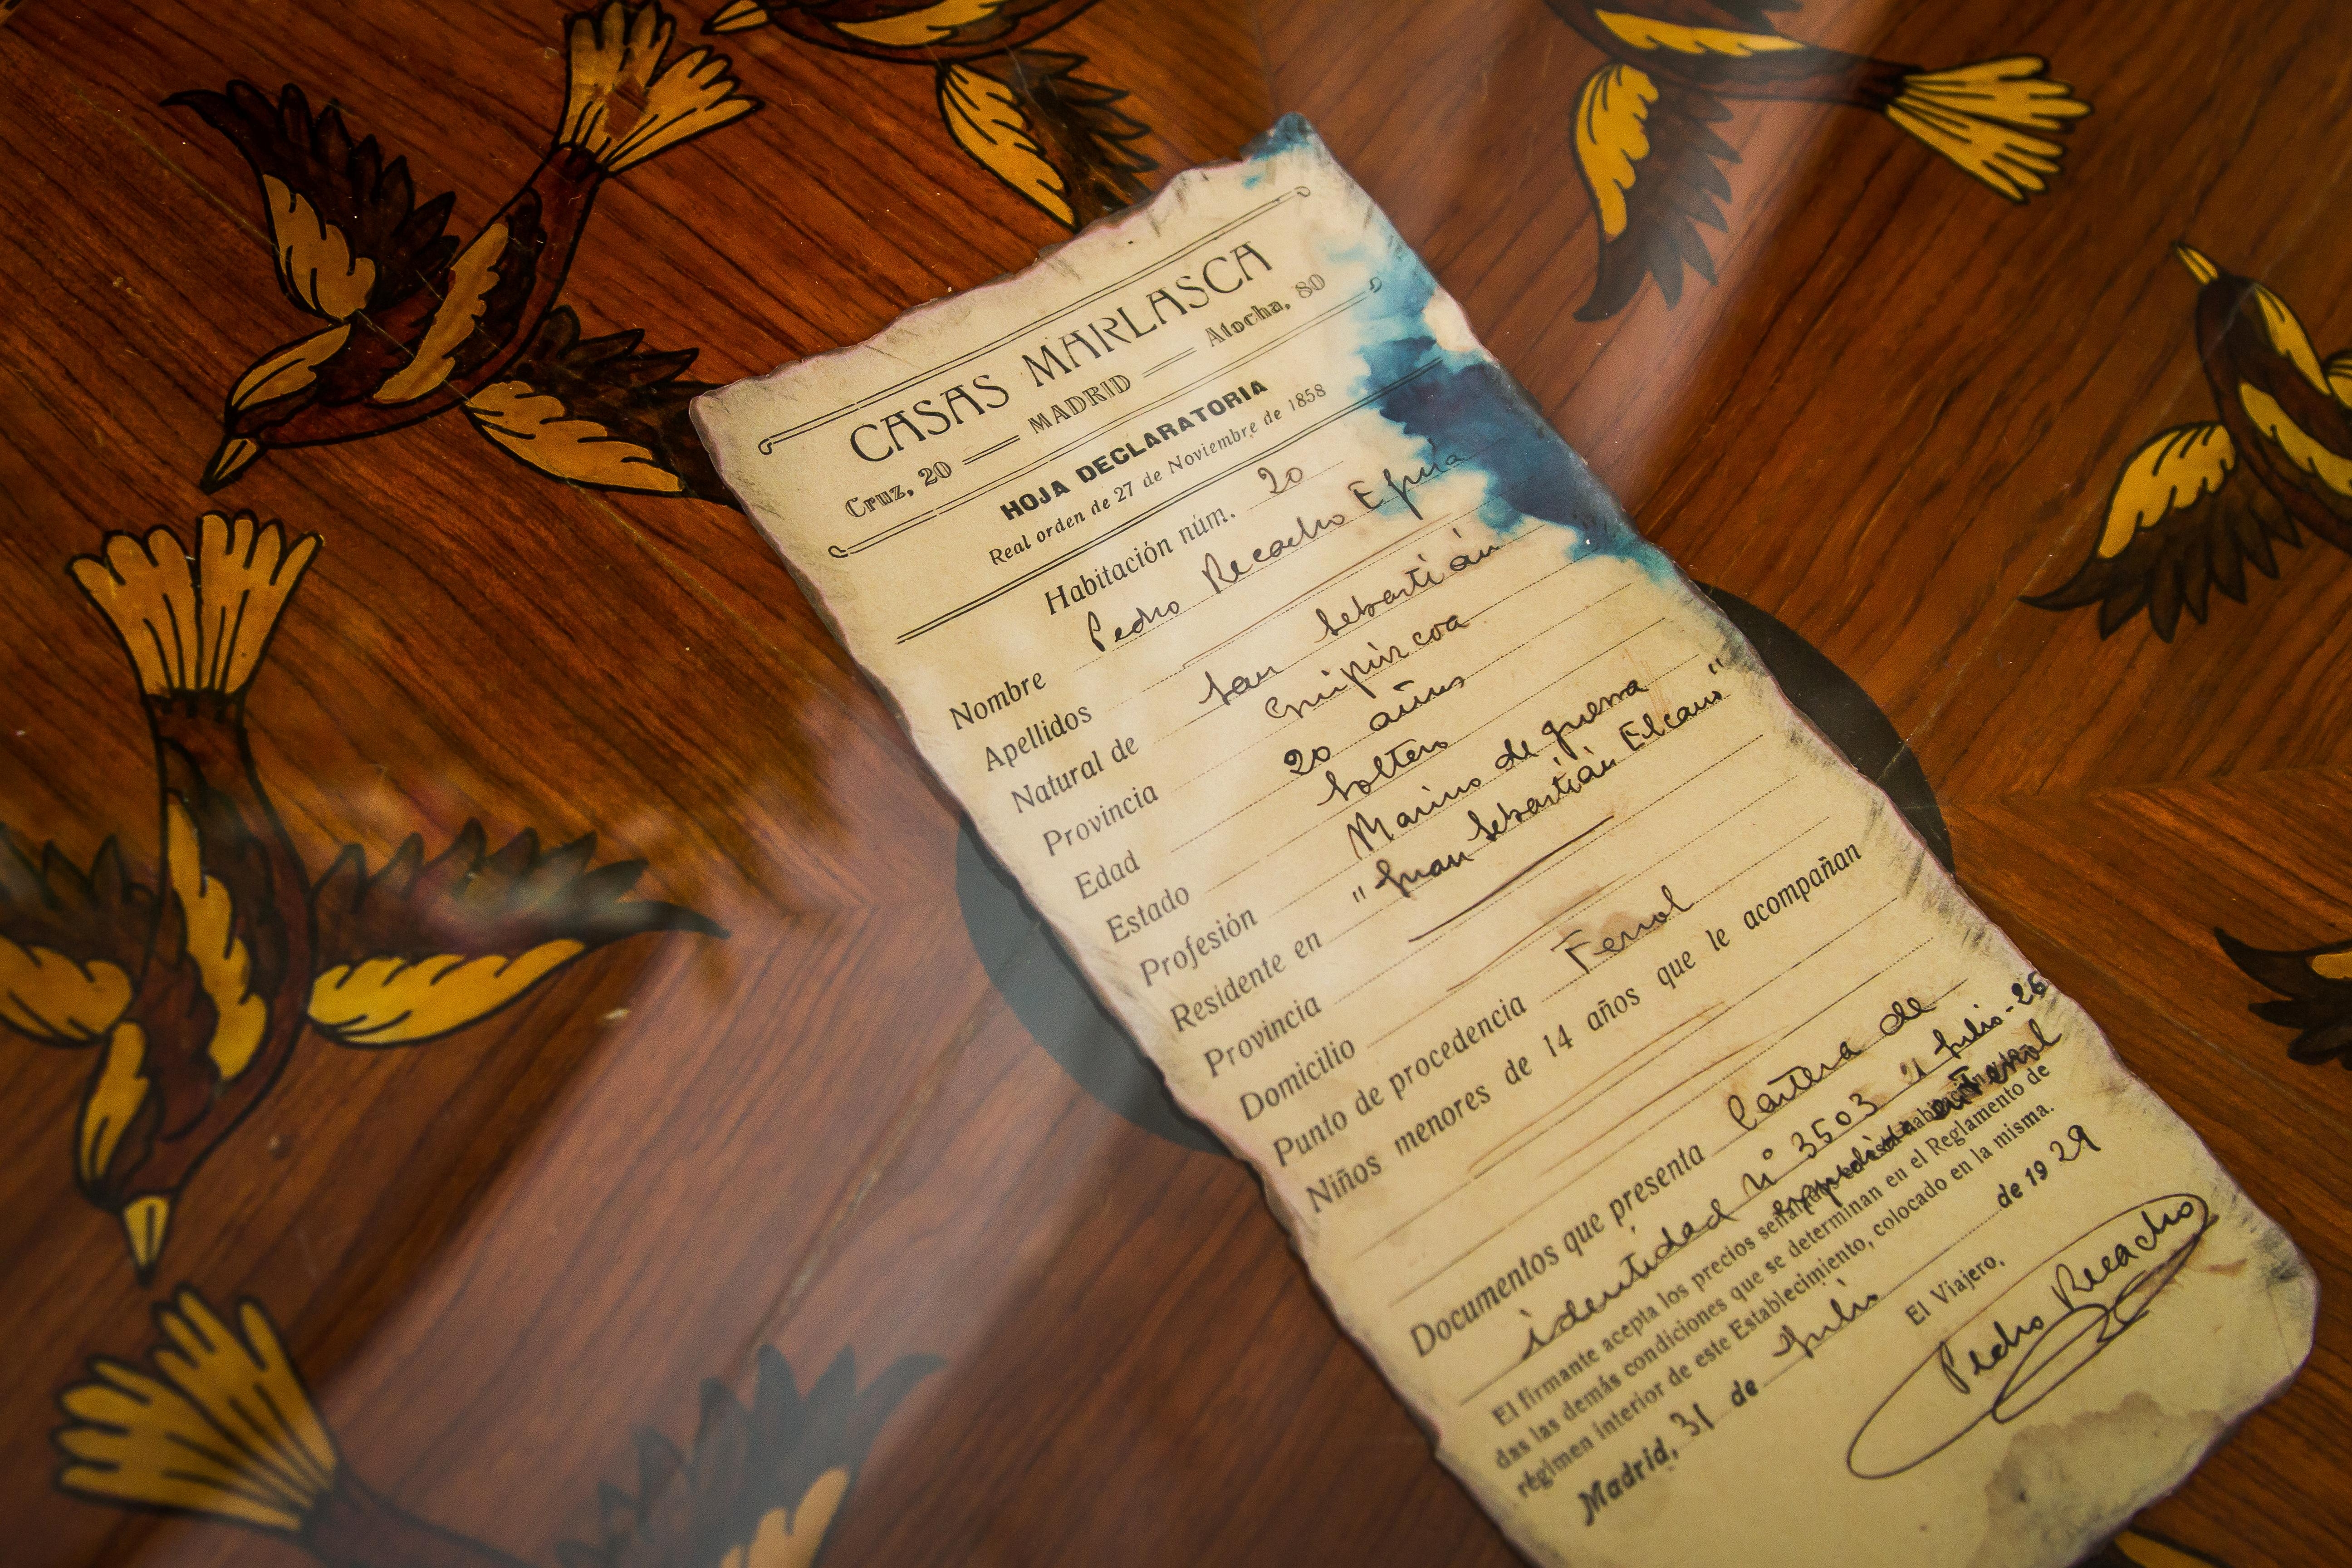 CASAS MARLASCA
Cruz, 20 MADRID Atocha, 80
HOJA DECLARATORIA
Real orden de 27 de Noviembre de 1858
Habitación núm. 20
Nombre Pedro Recacho
Apellidos
Natural de San Sebastián
Provincia Guipúzcoa
Edad 20 años
Estado Soltero
Profesión Marino de guerra
Residente en "Juan Sebastián Elcano"
Provincia
Domicilio
Punto de procedencia Ferrol
Niños menores de 14 años que le acompañan
Documentos que presenta Cartera de
identidad Nº 3503 Julio-26
expedida en Ferrol
El firmante acepta los precios señalados
das las demás condiciones que se determinan en el Reglamento de
régimen interior de este Establecimiento, colocado en la misma.
Madrid, 31 de Julio de 1929
El Viajero,
Pedro Recacho